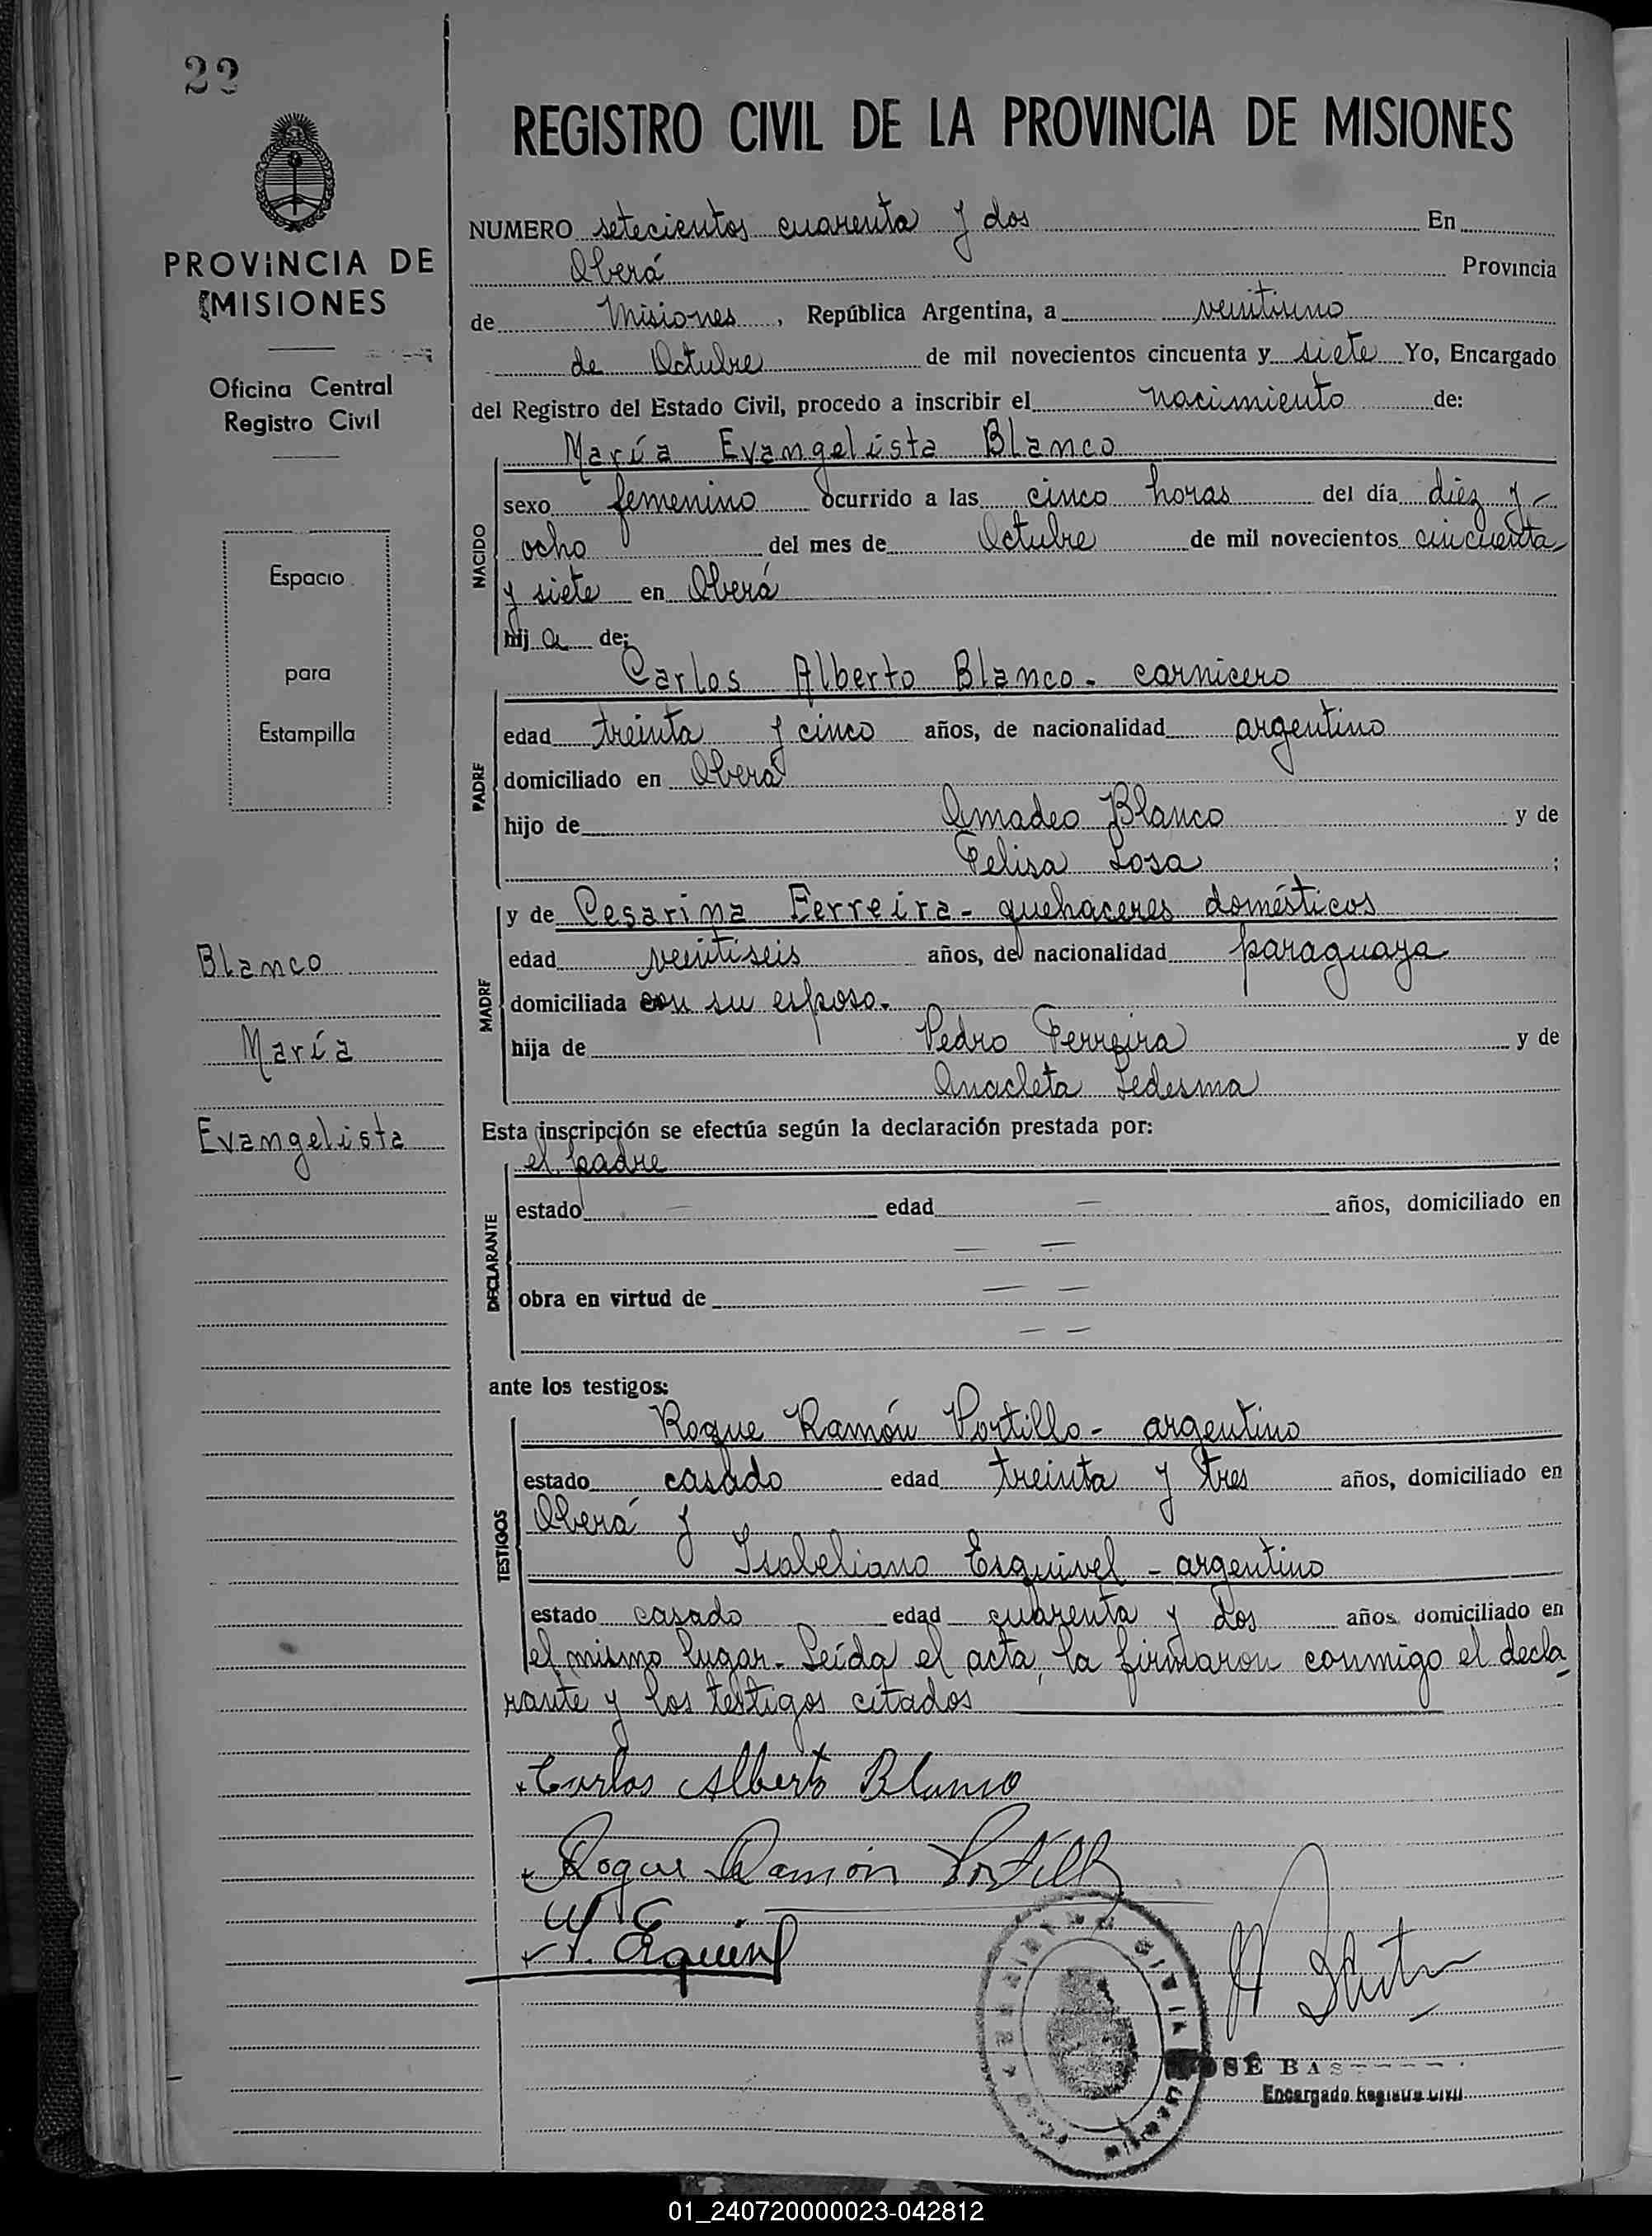 22
REGISTRO CIVIL DE LA PROVINCIA DE MISIONES
PROVINCIA DE
MISIONES
Oficina Central
Registro Civil
Espacio
para
Estampilla
Blanco
María
Evangelista
NUMERO setecientos cuarenta y dos En
Oberá Provincia
de Misiones, República Argentina, a veintiuno
de Octubre de mil novecientos cincuenta y siete Yo, Encargado
del Registro del Estado Civil, procedo a inscribir el nacimiento de:
María Evangelista Blanco
NACIDO
sexo femenino ocurrido a las cinco horas del día diez y
ocho del mes de Octubre de mil novecientos cincuenta
y siete en Oberá
hija de:
Carlos Alberto Blanco - carnicero
PADRE
edad treinta y cinco años, de nacionalidad argentino
domiciliado en Oberá
hijo de Amadeo Blanco y de
Felisa Sosa ;
y de Cesarina Ferreira - quehaceres domésticos
MADRE
edad veintiseis años, de nacionalidad paraguaya
domiciliada con su esposo.
hija de Pedro Ferreira y de
Anacleta Ledesma
Esta inscripción se efectúa según la declaración prestada por:
el padre
DECLARANTE
estado — edad — años, domiciliado en
— —
obra en virtud de — —
— —
ante los testigos:
Roque Ramón Portillo - argentino
TESTIGOS
estado casado edad treinta y tres años, domiciliado en
Oberá y
Isabeliano Esquivel - argentino
estado casado edad cuarenta y dos años domiciliado en
el mismo lugar. Leída el acta, la firmaron conmigo el decla-
rante y los testigos citados
Carlos Alberto Blanco
Roque Ramón Portillo
Esquivel
JOSÉ
Encargado Registro Civil
01_240720000023-042812